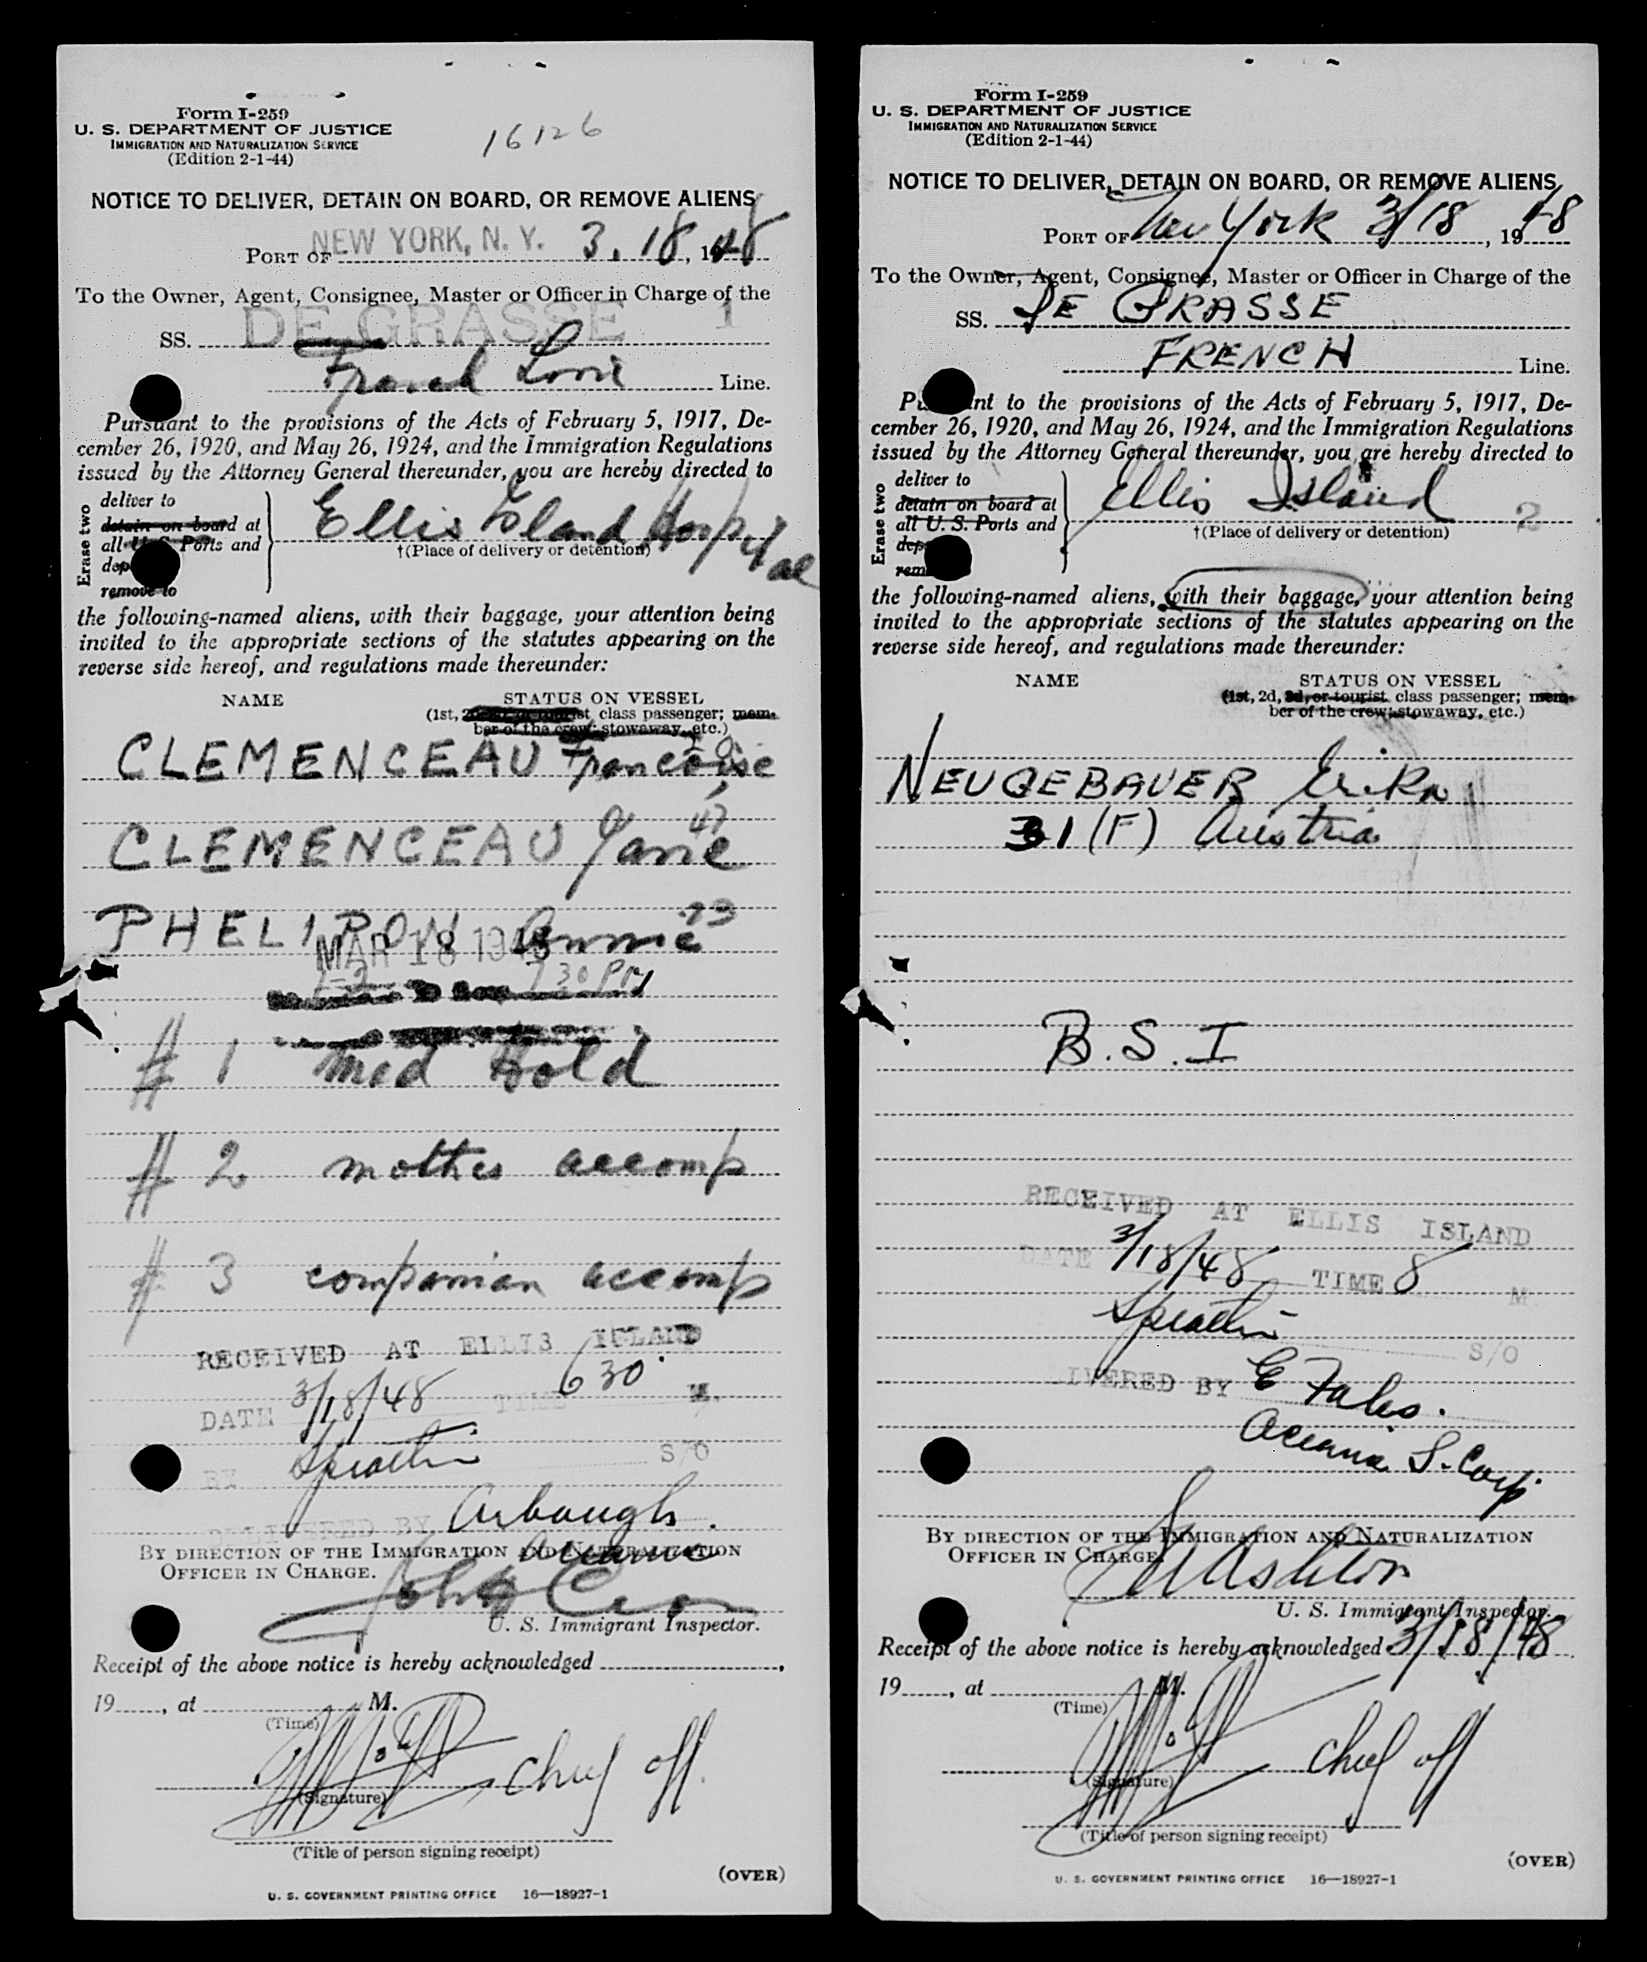 Form I-259
U. S. DEPARTMENT OF JUSTICE
IMMIGRATION AND NATURALIZATION SERVICE
(Edition 2-1-44)
16126
NOTICE TO DELIVER, DETAIN ON BOARD, OR REMOVE ALIENS
PORT OF NEW YORK, N. Y. 3. 18, 1948
To the Owner, Agent, Consignee, Master or Officer in Charge of the
SS. DE GRASSE 1
French Line Line.
Pursuant to the provisions of the Acts of February 5, 1917, De-
cember 26, 1920, and May 26, 1924, and the Immigration Regulations
issued by the Attorney General thereunder, you are hereby directed to
Erase two
deliver to
detain on board at
all U. S. Ports and
dep
remove to
Ellis Island Hospital
†(Place of delivery or detention)
the following-named aliens, with their baggage, your attention being
invited to the appropriate sections of the statutes appearing on the
reverse side hereof, and regulations made thereunder:
NAME STATUS ON VESSEL
(1st, class passenger; mem-
ber of the crew; stowaway, etc.)
CLEMENCEAU Francoise
47
CLEMENCEAU Jane
PHELIPON Annie
MAR 18 1948
7 30 PM
# 1 Med Hold
# 2 mother accomp
# 3 companion accomp
RECEIVED AT ELLIS ISLAND
DATE 3/18/48 TIME 6 30 M.
BY S/O
DELIVERED BY Arbaugh.
BY DIRECTION OF THE IMMIGRATION AND NATURALIZATION
OFFICER IN CHARGE.
U. S. Immigrant Inspector.
Receipt of the above notice is hereby acknowledged ,
19 , at M.
(Time)
Chief off.
(Signature)
(Title of person signing receipt)
(OVER)
U. S. GOVERNMENT PRINTING OFFICE 16—18927-1
Form I-259
U. S. DEPARTMENT OF JUSTICE
IMMIGRATION AND NATURALIZATION SERVICE
(Edition 2-1-44)
NOTICE TO DELIVER, DETAIN ON BOARD, OR REMOVE ALIENS
PORT OF New York 3/18, 1948
To the Owner, Agent, Consignee, Master or Officer in Charge of the
SS. DE GRASSE
FRENCH Line.
nt to the provisions of the Acts of February 5, 1917, De-
cember 26, 1920, and May 26, 1924, and the Immigration Regulations
issued by the Attorney General thereunder, you are hereby directed to
Erase two
deliver to
detain on board at
all U. S. Ports and
dep
rem
Ellis Island 2
†(Place of delivery or detention)
the following-named aliens, with their baggage, your attention being
invited to the appropriate sections of the statutes appearing on the
reverse side hereof, and regulations made thereunder:
NAME STATUS ON VESSEL
(1st, 2d, 3d, or tourist class passenger; mem-
ber of the crew; stowaway, etc.)
NEUGEBAUER Erika
31 (F) Austria
B. S. I
RECEIVED AT ELLIS ISLAND
DATE 3/18/48 TIME 8 M
S/O
LIVERED BY E Fales.
Oceanic S. Corp.
BY DIRECTION OF THE IMMIGRATION AND NATURALIZATION
OFFICER IN CHARGE.
Ashton
U. S. Immigrant Inspector.
Receipt of the above notice is hereby acknowledged 3/18/48
19 , at M.
(Time)
Chief off
(Signature)
(Title of person signing receipt)
(OVER)
U. S. GOVERNMENT PRINTING OFFICE 16—18927-1